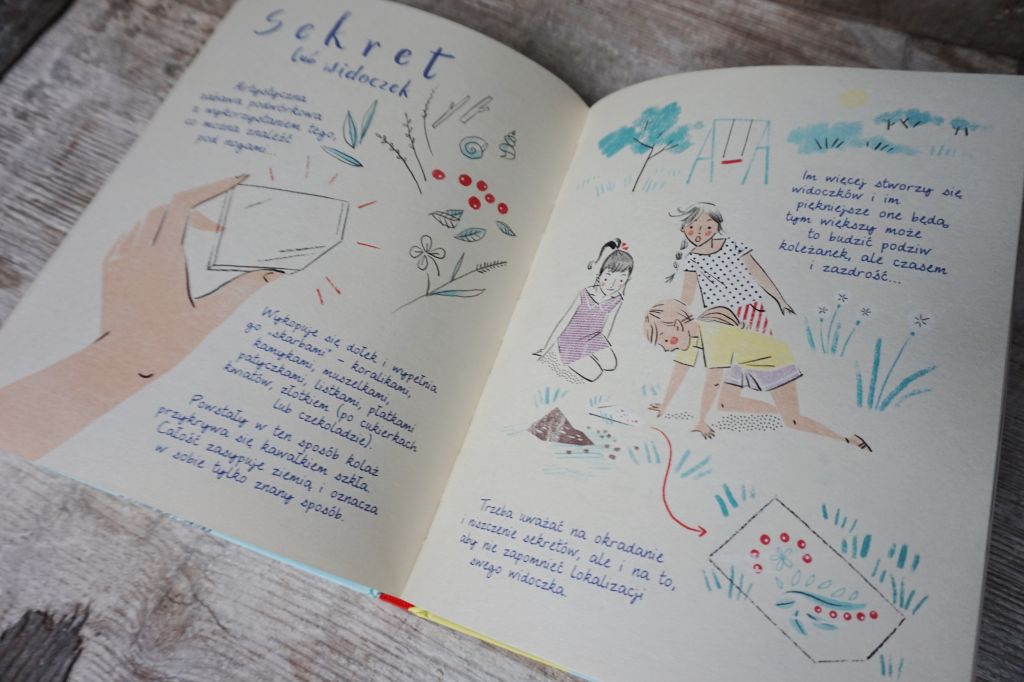 Sekret
lub widoczek
Artystyczna
zabawa podwórkowa
z wykorzystaniem tego,
co można znaleźć
pod nogami...
Wykopuje się dołek i wypełnia
go „skarbami” – koralikami,
kamykami, muszelkami,
patyczkami, listkami, płatkami
kwiatów, złotkiem (po cukierkach
lub czekoladzie).
Powstały w ten sposób kolaż
przykrywa się kawałkiem szkła.
Całość zasypuje ziemią i oznacza
w sobie tylko znany sposób.
Im więcej stworzy się
widoczków i im
piękniejsze one będą,
tym większy może
to budzić podziw
koleżanek, ale czasem
i zazdrość...
Trzeba uważać na okradanie
i niszczenie sekretów, ale i na to,
aby nie zapomnieć lokalizacji
swego widoczka.